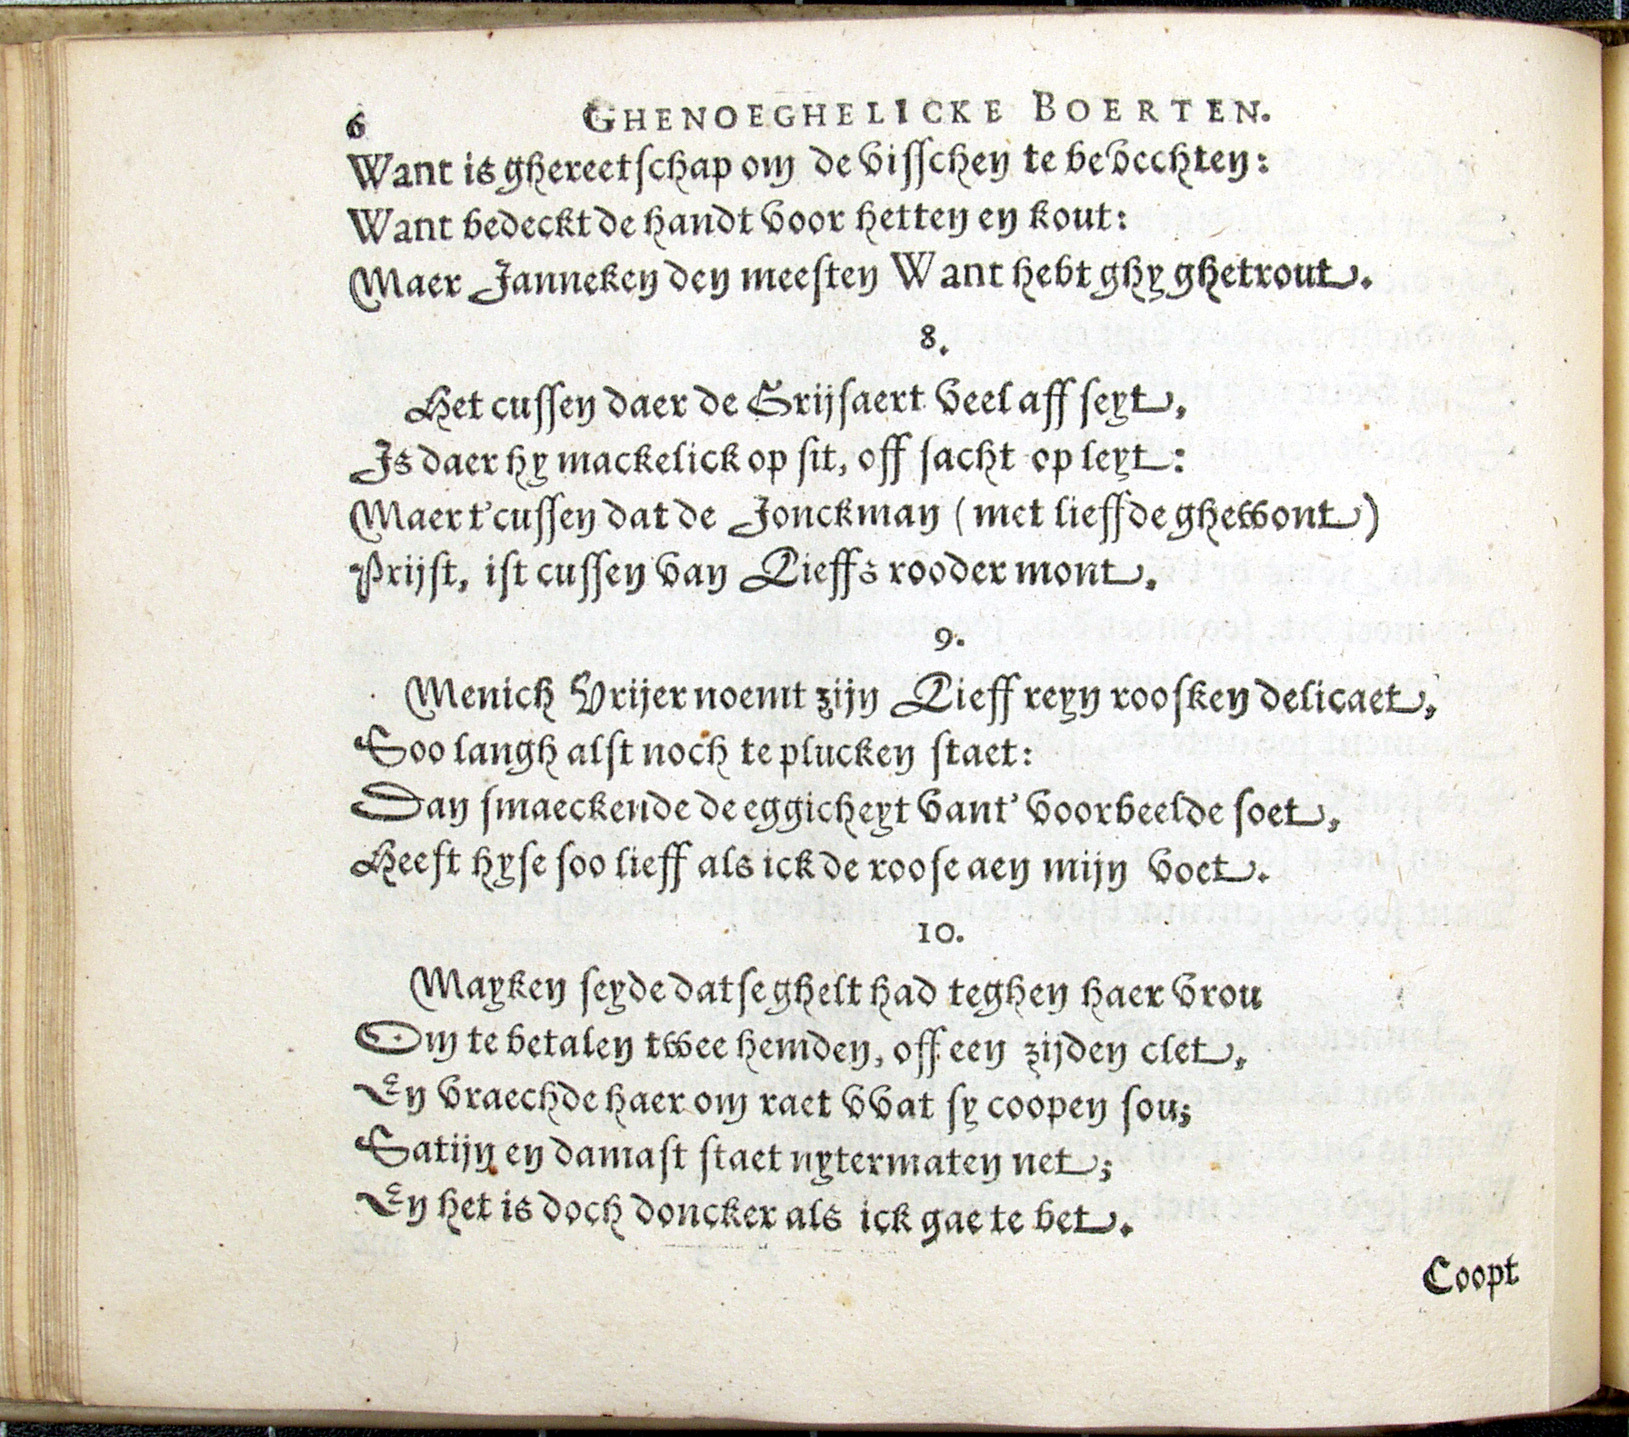 6 GHENOEGHELICKE BOERTEN.
Want is ghereetschap om de visschen te bevechten:
Want bedeckt de handt voor hetten en kout:
Maer Janneken den meesten Want hebt ghy ghetrout.
8.
Het cussen daer de Grijsaert veel aff seyt,
Is daer hy mackelick op sit, off sacht op leyt:
Maer t'cussen dat de Jonckman (met lieffde ghewont)
Prijst, ist cussen van Lieffs rooder mont.
9.
Menich Vrijer noemt zijn Lieff reyn roosken delicaet,
Soo langh alst noch te plucken staet:
Dan smaeckende de eggicheyt vant' voorbeelde soet,
Heeft hyse soo lieff als ick de roose aen mijn voet.
10.
Mayken seyde datse ghelt had teghen haer vrou
Om te betalen twee hemden, off een zijden clet,
En vraechde haer om raet vvat sy coopen sou;
Satijn en damast staet uytermaten net;
En het is doch doncker als ick gae te bet.
Coopt